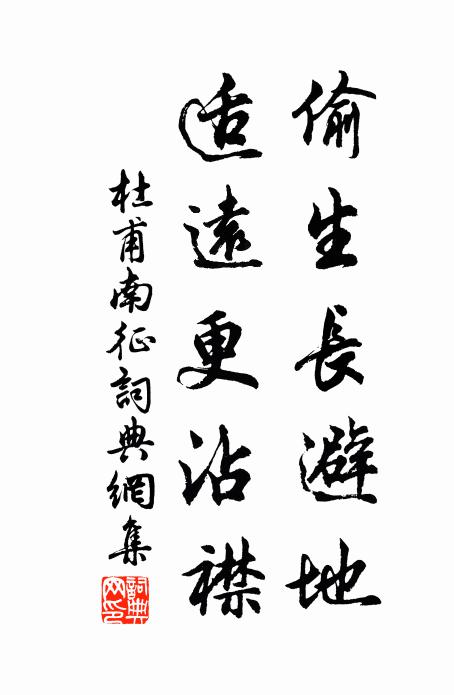 偷生長避地
适遠更沾襟
杜甫南征詞典網集
詞典網印